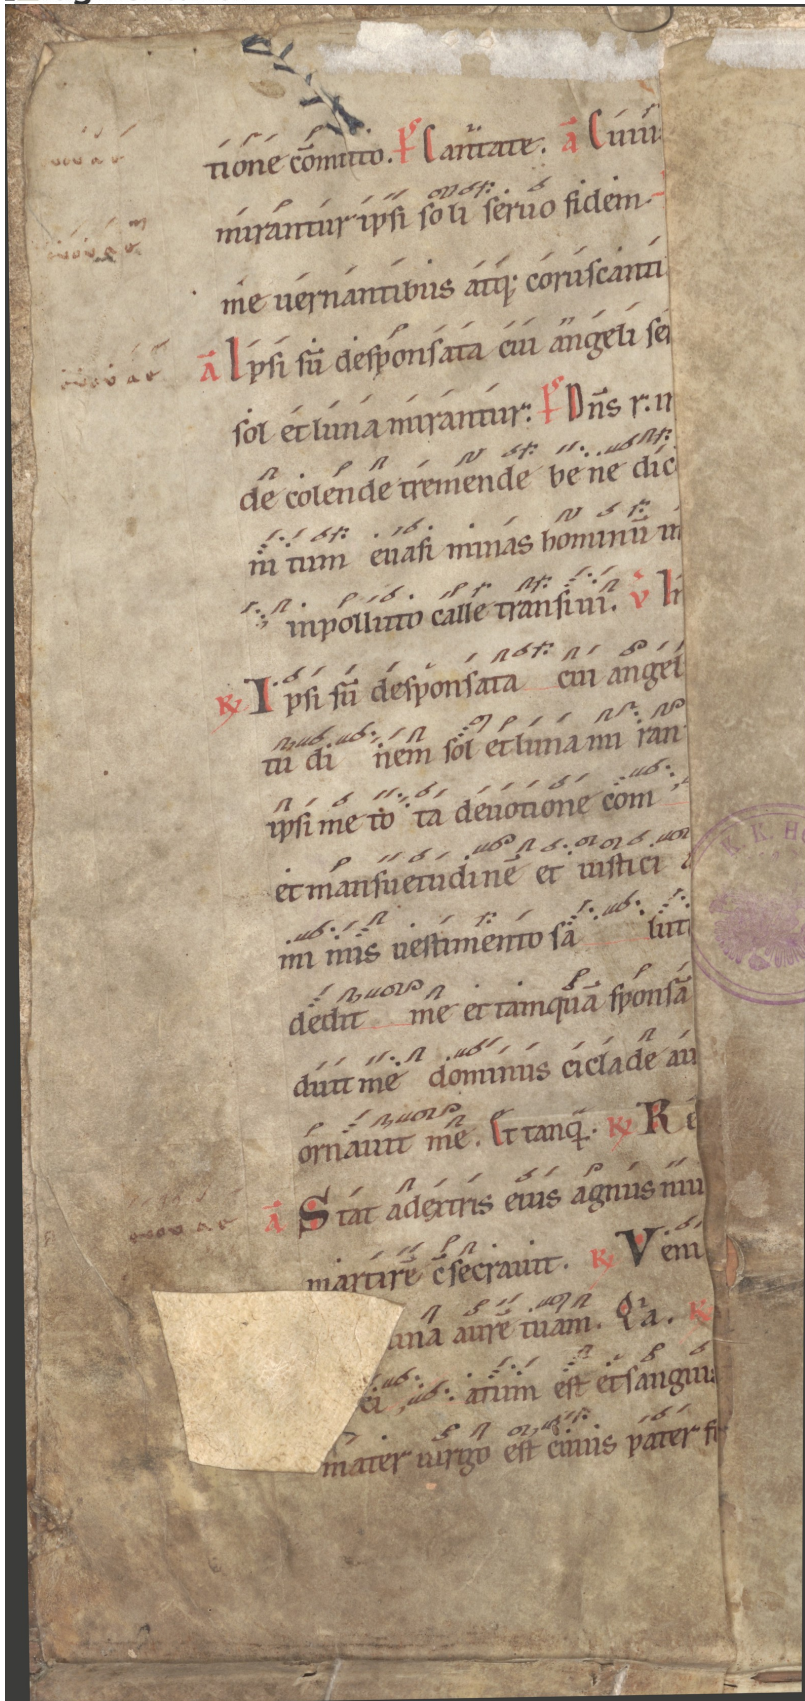 tione cōmitto. Ps Cantate. ā Cuius
mirantur ipsi soli seruo fidem
me uernantibus atq; coruscanti
ā Ipsi sū desponsata cui angeli ser
sol et luna mirantur. Ps Dn̄s r.
de colende tremende be ne dic
ni tum euasi minas hominū in
inpolluto calle transiui. v In
R Ipsi sū desponsata cui angel
tu di nem sol et luna mi ran
ipsi me to ta deuotione com
et mansuetudinē et iusti ci
mi nus uestimento sa luti
dedit me et tamquā sponsā
duit me dominus ciclade au
ornauit me. Et tanq̄. R
ā Stat a dextris eius agnus niu
martirē c̄secrauit. R Veni
aurē tuam. Q̄a. R
ei atum est et sanguis
mater uirgo est cuius pater
K. K. H